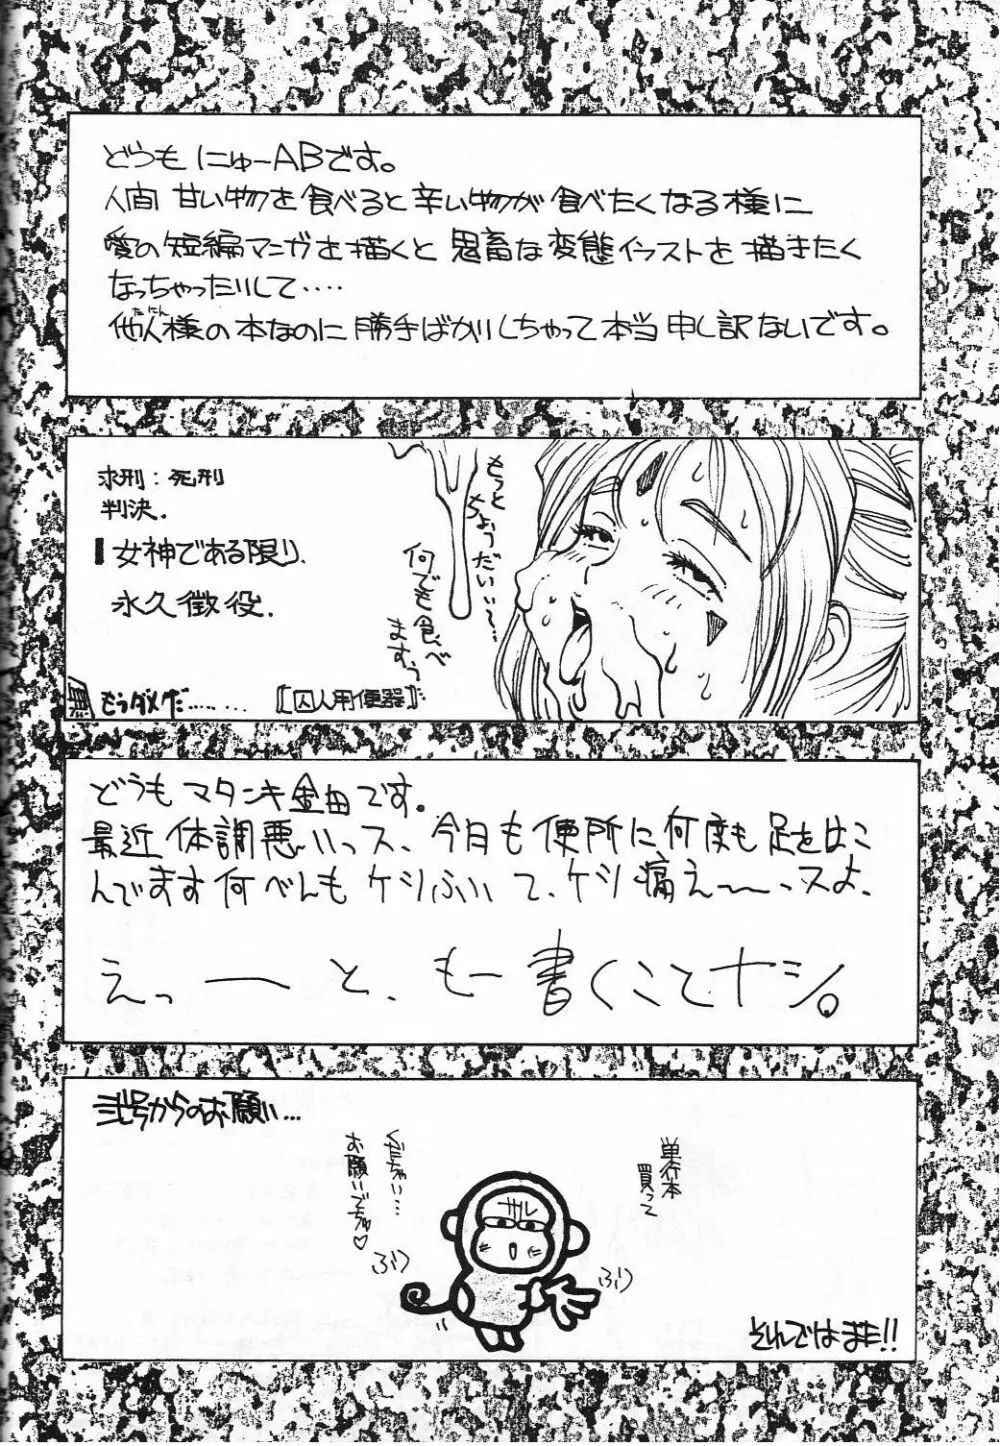 どうも にゅーABです。
人間 甘い物を食べると辛い物が食べたくなる様に
愛の短編マンガを描くと鬼畜な変態イラストを描きたく
なっちゃったりして‥‥
他人様の本なのに勝手ばかりしちゃって本当申し訳ないです。
たにん
求刑：死刑
判決.
女神である限り.
永久徴役.
もうダメだ……...
【囚人用便器】
もっと
ちょうだいい〜…
何でも食べ
ますっ
どうもマタンキ金田です。
最近体調悪いっス、今日も便所に何度も足をはこ
んでます何べんもケツふいて、ケツ痛え〜〜っスよ、
えっ ー と、もー書くことナシ。
弐号からのお願い…
単行本
買って
くだちゃい…
お願いでちゅ♡
ふり
ふり
サル
それではまた!!